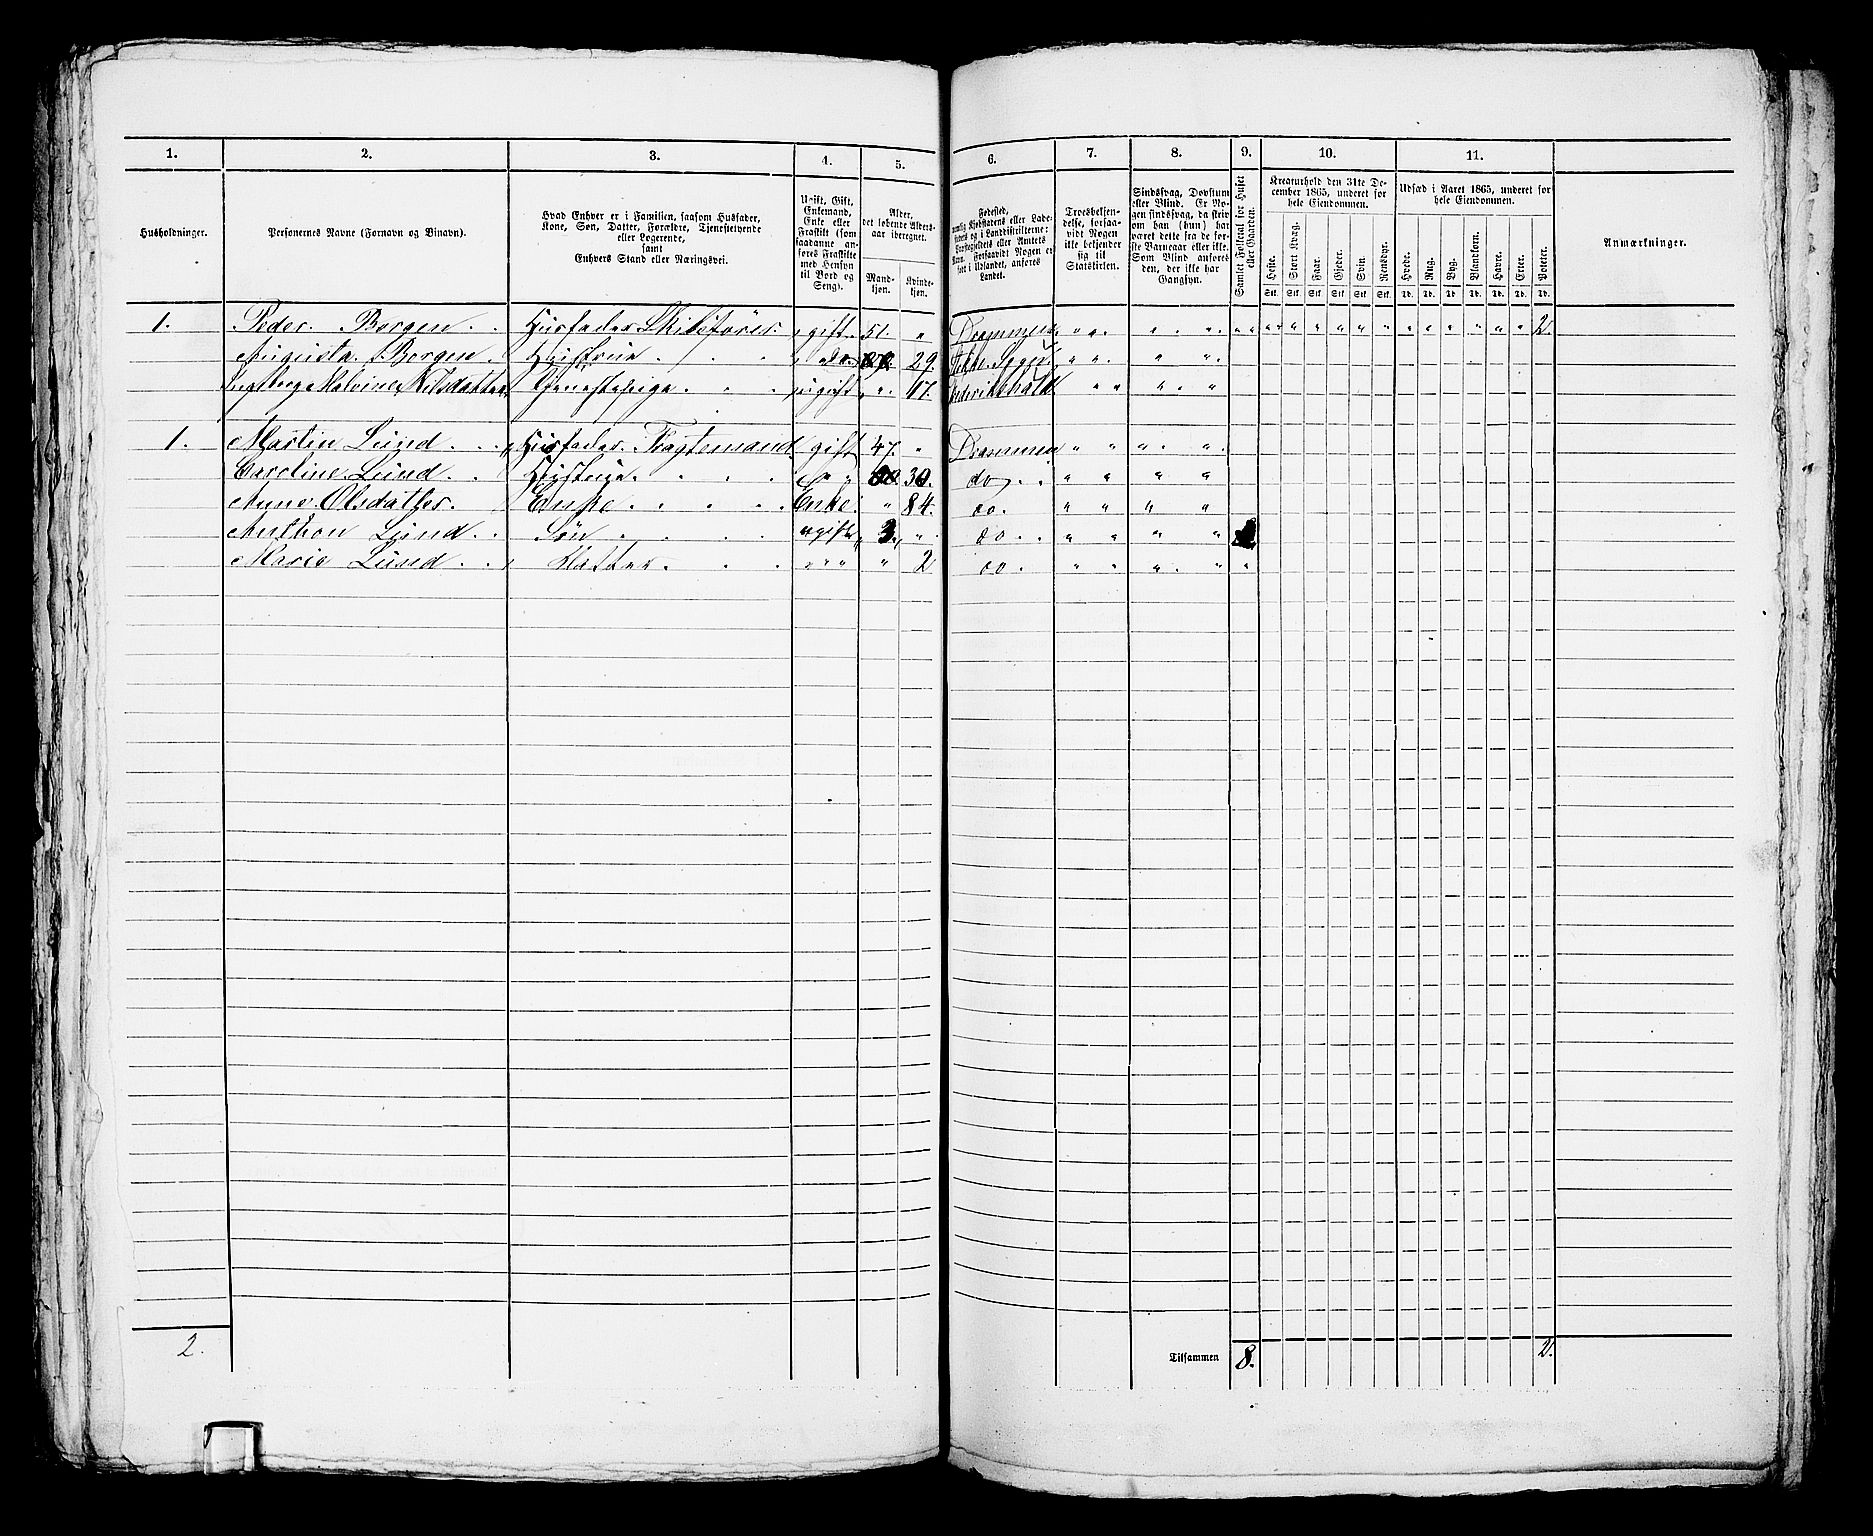 1. 2. 3. 4. 5. 6. 7. 8. 9. 10. 11.
Husholdninger.
Personernes Navne (Fornavn og Binavn).
Hvad Enhver er i Familien, saasom Husfader,
Kone, Søn, Datter, Forældre, Tjenestetyende
eller Logerende,
samt
Enhvers Stand eller Næringsvei.
Ugift, Gift,
Enkemand,
Enke eller
Fraskilt (som
saadanne an-
føres Fraskilte
med Hensyn
til Bord og
Seng).
Alder,
det løbende Alders-
aar iberegnet.
Mand-
kjøn.
Kvinde-
kjøn.
Fødested,
nemlig Kjøbstadens eller Lade-
stedets og i Landdistrikterne:
Præstegjeldets eller Amtets
Navn. Forsaavidt Nogen er
født i Udlandet, anføres
Landet.
Troesbekjen-
delse, forsaa-
vidt Nogen
ikke bekjender
sig til
Statskirken.
Sindssvag, Døvstum
eller Blind. Er No-
gen sindssvag, da skriv
om han (hun) har
været dette fra de før-
ste Barneaar eller ikke.
Som Blind anføres
den, der ikke har
Gangsyn.
Samlet Folketal for Huset
eller Gaarden.
Kreaturhold den 31te De-
cember 1865, underet for
hele Eiendommen.
Heste. Stort Kvæg. Faar. Gjeder. Svin. Rensdyr.
Stk. Stk. Stk. Stk. Stk. Stk.
Udsæd i Aaret 1865, underet for
hele Eiendommen.
Hvede. Rug. Byg. Blandkorn. Havre. Erter. Poteter.
Td. Td. Td. Td. Td. Td. Td.
Anmærkninger.
1. Peder Borgen Husfader gift 51. " Drammen " " " " " " " " " " " " " " " " 2.
Augusta Borgen Hustrue do 29. " " " "
Ingeborg Malvine Nilsdatter Tjenestepige ugift " 17. Frederikshald " " " "
1. Martin Lund Husfader. Fragtemand gift 47. " Drammen " " " "
Caroline Lund Hustrue " " 30. do " " " "
Anne Olsdatter. Enke Enke " 84. do. " " " "
Anthon Lund Søn ugift 3. " do " " " "
Marie Lund Datter. " " " " 2 do. " " " " "
2. Tilsammen 8. 2.